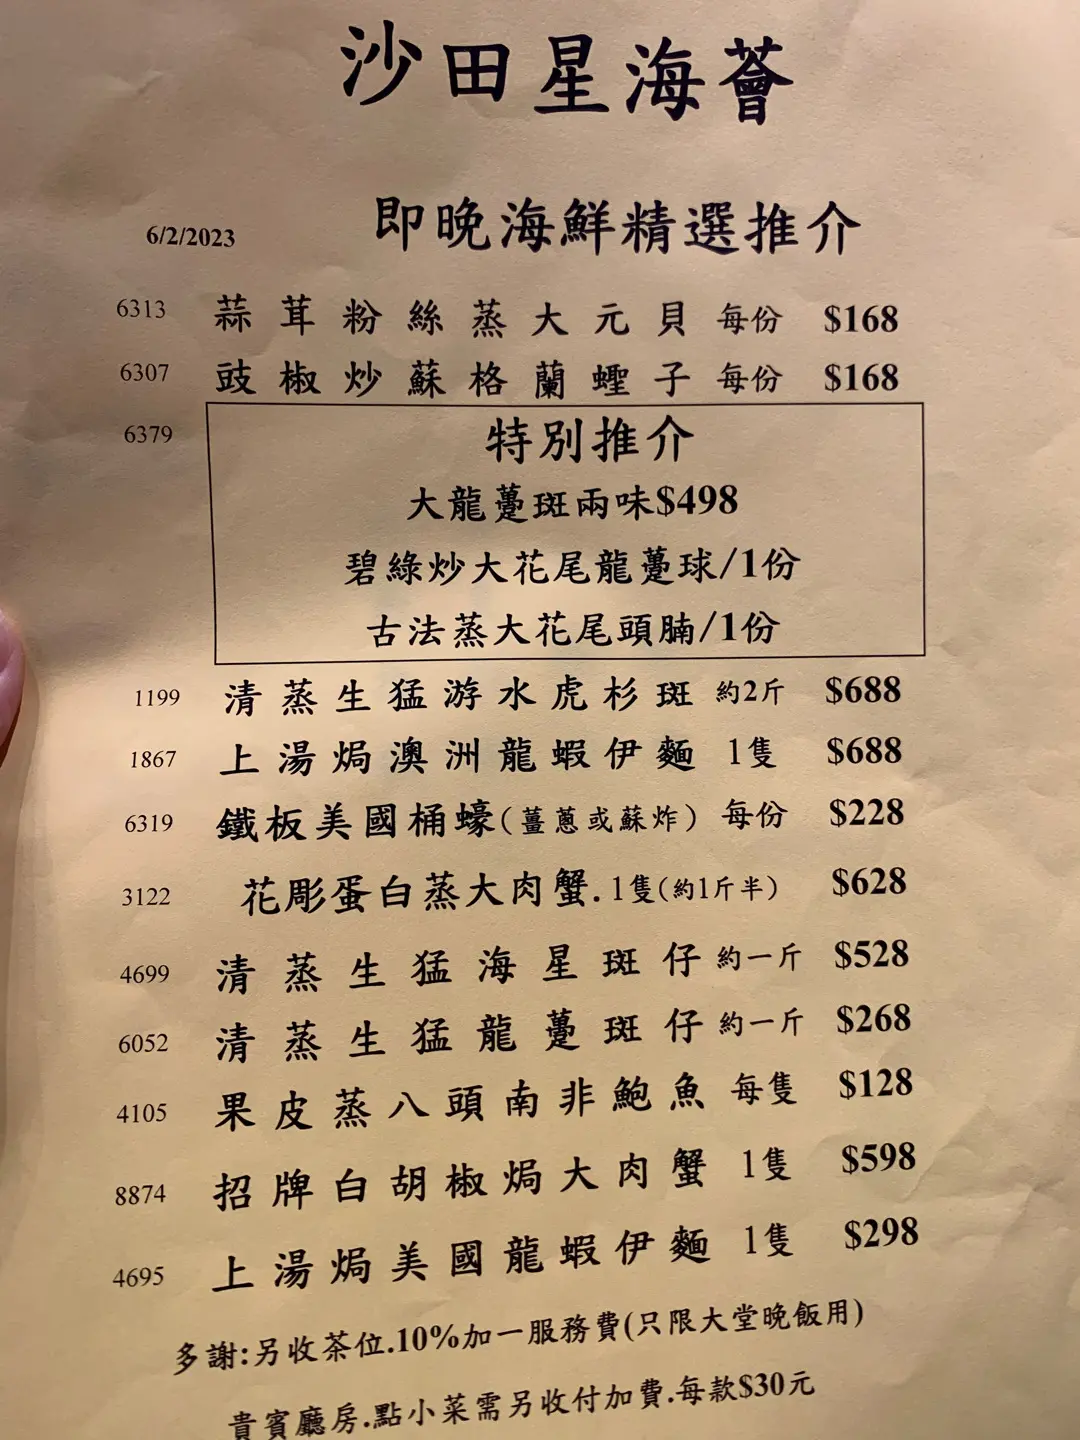 沙田星海薈
6/2/2023 即晚海鮮精選推介
6313 蒜茸粉絲蒸大元貝 每份 $168
6307 豉椒炒蘇格蘭蟶子 每份 $168
6379 特別推介
大龍躉斑兩味$498
碧綠炒大花尾龍躉球/1份
古法蒸大花尾頭腩/1份
1199 清蒸生猛游水虎杉斑 約2斤 $688
1867 上湯焗澳洲龍蝦伊麵 1隻 $688
6319 鐵板美國桶蠔(薑蔥或蘇炸) 每份 $228
3122 花彫蛋白蒸大肉蟹.1隻(約1斤半) $628
4699 清蒸生猛海星斑仔 約一斤 $528
6052 清蒸生猛龍躉斑仔 約一斤 $268
4105 果皮蒸八頭南非鮑魚 每隻 $128
8874 招牌白胡椒焗大肉蟹 1隻 $598
4695 上湯焗美國龍蝦伊麵 1隻 $298
多謝:另收茶位.10%加一服務費(只限大堂晚飯用)
貴賓廳房.點小菜需另收付加費.每款$30元